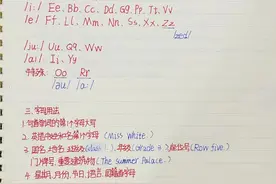 /iː/ Ee. Bb. Cc. Dd. Gg. Pp. Tt. Vv
/e/ Ff. Ll. Mm. Nn. Ss. Xx. Zz
/zed/
/juː/ Uu. Qq. Ww
/aɪ/ Ii、Yy
特殊: Oo Rr
/əu/ /aː/
三.字母用法
1. 句首单词的第1个字母大写
2. 英语姓和名第1个字母 (Miss White)
3. 国名、地名、班级 (Class 1)、年级 (Grade 3)、排 (Row five)
门牌号、重要建筑物 (The Summer Palace.)
4. 星期、月份、节日、语言、首字母